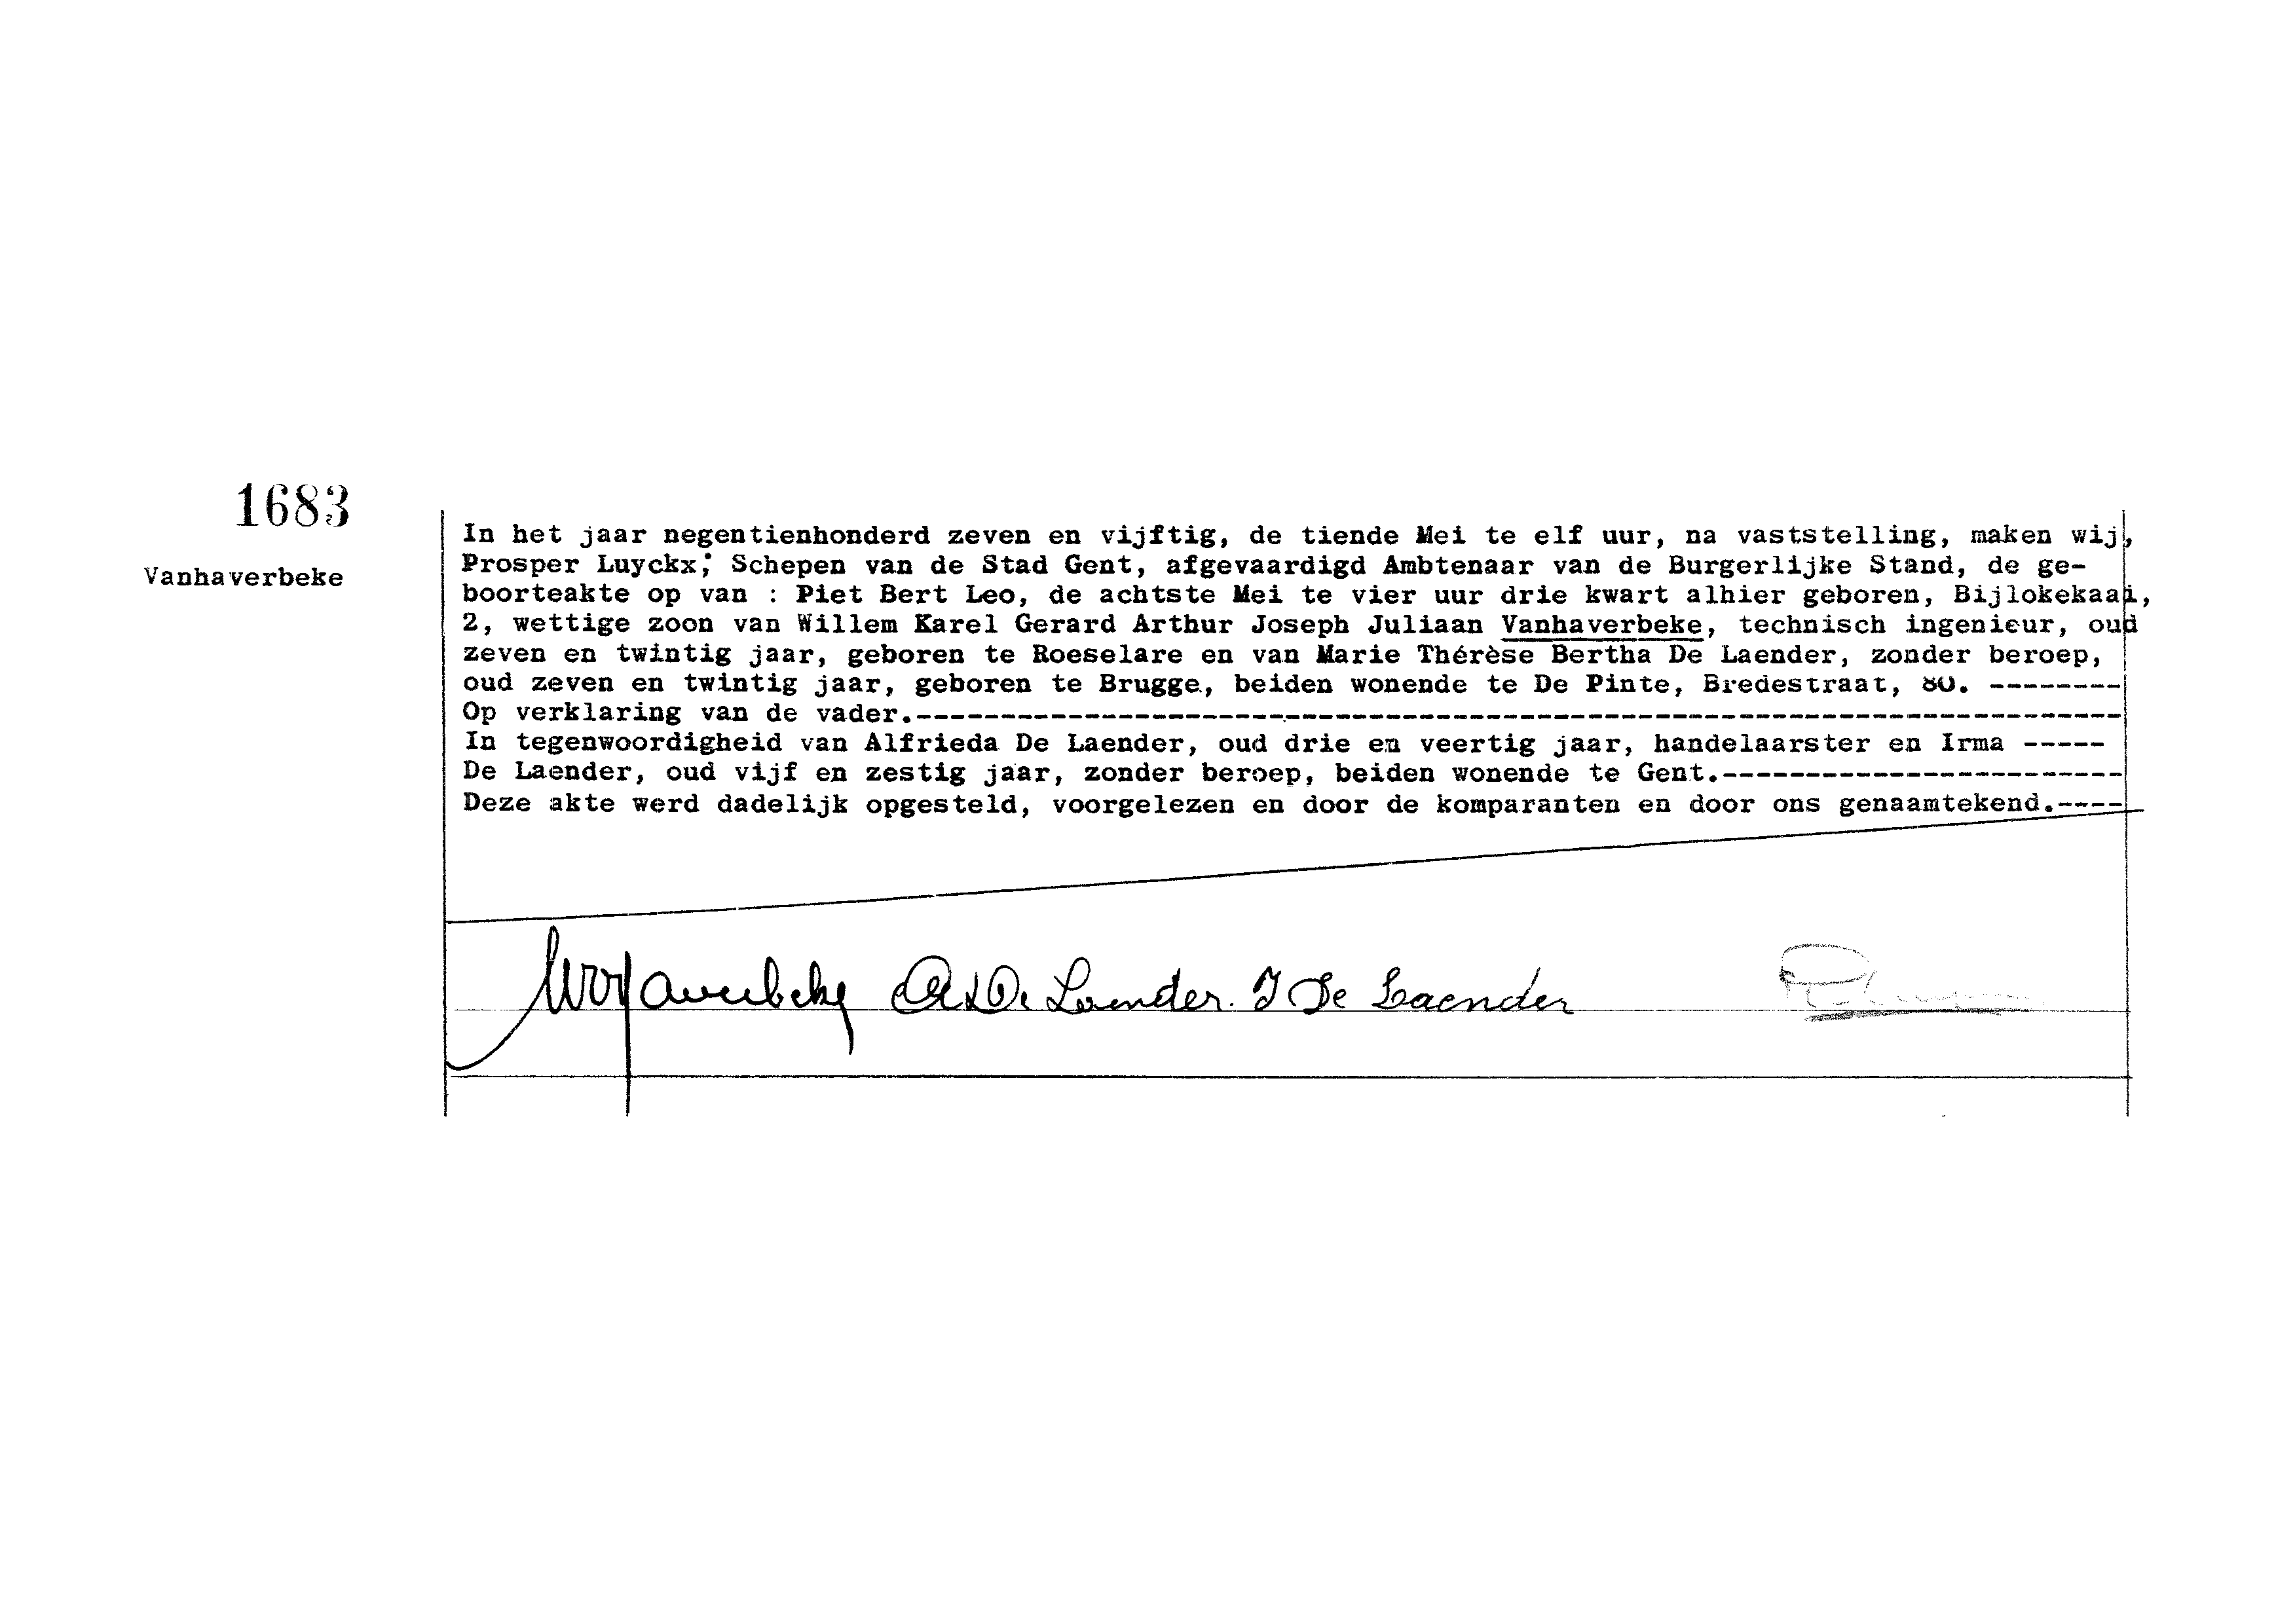 1683
Vanhaverbeke
In het jaar negentienhonderd zeven en vijftig, de tiende Mei te elf uur, na vaststelling, maken wij,
Prosper Luyckx; Schepen van de Stad Gent, afgevaardigd Ambtenaar van de Burgerlijke Stand, de ge-
boorteakte op van : Piet Bert Leo, de achtste Mei te vier uur drie kwart alhier geboren, Bijlokekaai,
2, wettige zoon van Willem Karel Gerard Arthur Joseph Juliaan Vanhaverbeke, technisch ingenieur, oud
zeven en twintig jaar, geboren te Roeselare en van Marie Thérèse Bertha De Laender, zonder beroep,
oud zeven en twintig jaar, geboren te Brugge, beiden wonende te De Pinte, Bredestraat, 80. --------
Op verklaring van de vader.------------------------------------------------------------------------
In tegenwoordigheid van Alfrieda De Laender, oud drie en veertig jaar, handelaarster en Irma -----
De Laender, oud vijf en zestig jaar, zonder beroep, beiden wonende te Gent.------------------------
Deze akte werd dadelijk opgesteld, voorgelezen en door de komparanten en door ons genaamtekend.----
De Laender. I De Laender